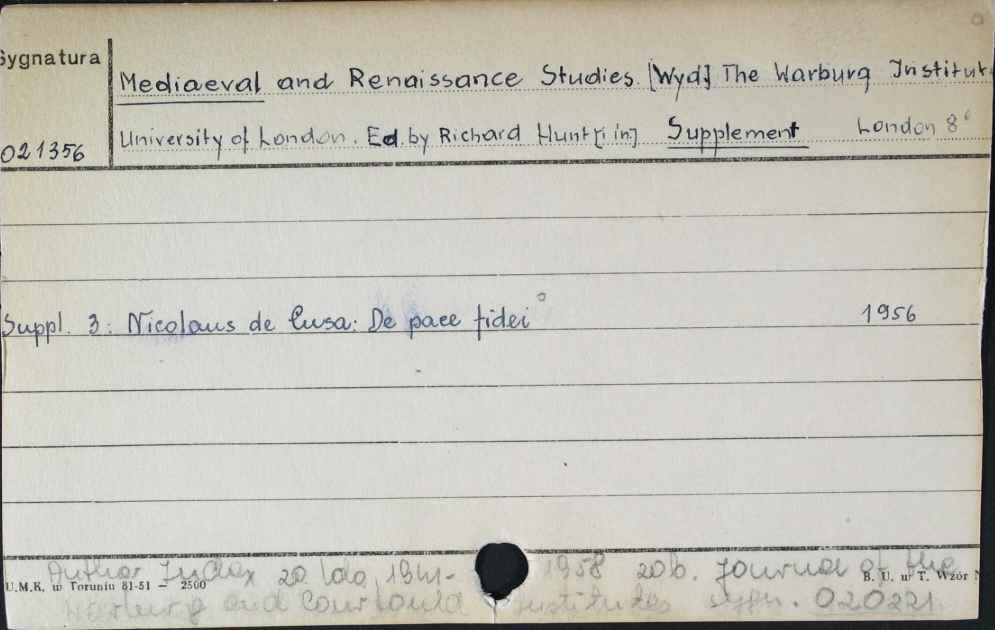 Sygnatura
Mediaeval and Renaissance Studies. [Wyd] The Warburg Institut
021356
University of London. Ed. by Richard Hunt [i in] Supplement London 8°
Suppl. 3: Nicolaus de Cusa: De pace fidei° 1956
Author Index za lata 1941- 1958 zob. Journal of the
U.M.K. w Toruniu 81-51 — 2500
B. U. w T. Wzór
Warburg and Courtauld Institutes sygn. 020221